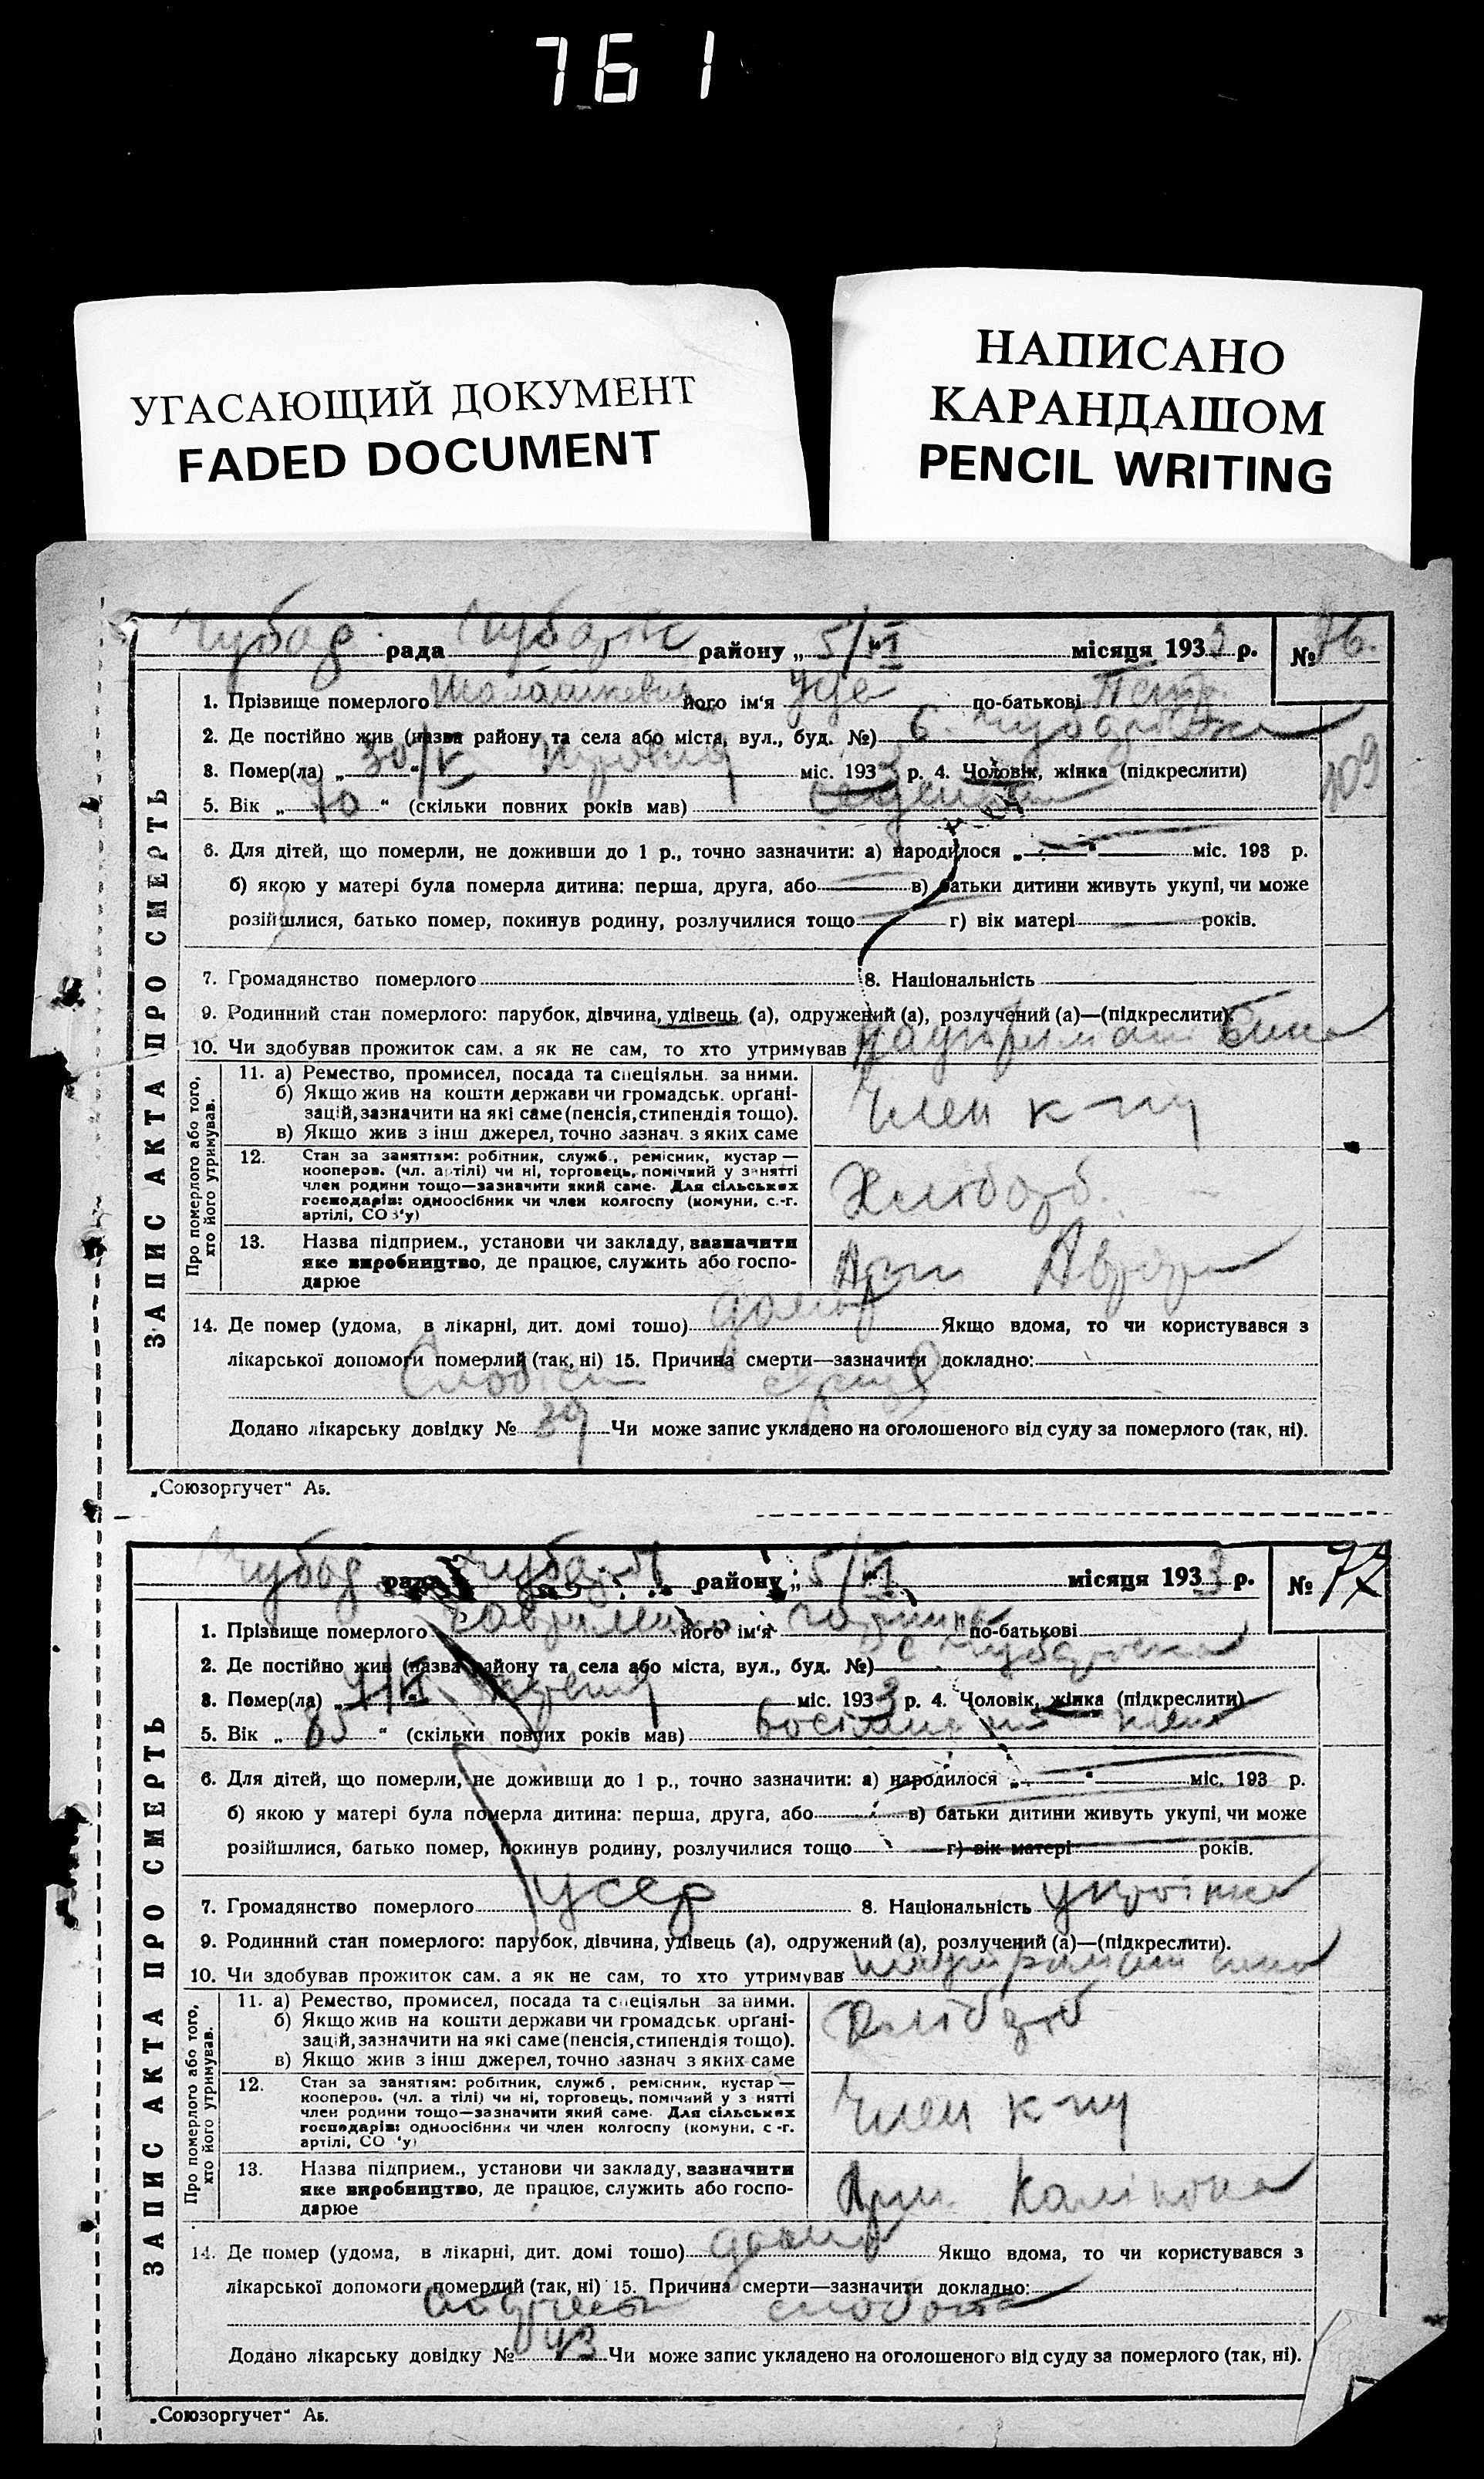 761
УГАСАЮЩИЙ ДОКУМЕНТ
FADED DOCUMENT
НАПИСАНО
КАРАНДАШОМ
PENCIL WRITING
ЗАПИС АКТА ПРО СМЕРТЬ
рада району „5/VI“ місяця 1933 р. № 76.
1. Прізвище померлого його ім'я по-батькові Петр.
2. Де постійно жив (назва району та села або міста, вул., буд. №) с.
3. Помер(ла) „30/V“ міс. 1933 р. 4. Чоловік, жінка (підкреслити)
109
5. Вік „70“ (скільки повних років мав)
6. Для дітей, що померли, не доживши до 1 р., точно зазначити: а) народилося „ “ міс. 193 р.
б) якою у матері була померла дитина: перша, друга, або в) батьки дитини живуть укупі, чи може
розійшлися, батько помер, покинув родину, розлучилися тощо г) вік матері років.
7. Громадянство померлого 8. Національність
9. Родинний стан померлого: парубок, дівчина, удівець (а), одружений (а), розлучений (а)—(підкреслити).
10. Чи здобував прожиток сам, а як не сам, то хто утримував
Про померлого або того, хто його утримував.
11. а) Ремество, промисел, посада та спеціяльн. за ними.
б) Якщо жив на кошти держави чи громадськ. орґані-
зацій, зазначити на які саме (пенсія, стипендія тощо).
в) Якщо жив з інш джерел, точно зазнач. з яких саме
Член к-пу
12. Стан за заняттям: робітник, служб., ремісник, кустар—
кооперов. (чл. артілі) чи ні, торговець, помічний у занятті
член родини тощо—зазначити який саме. Для сільських
господарів: одноосібник чи член колгоспу (комуни, с.-г.
артілі, СОЗ'у)
Хлібороб.
13. Назва підприєм., установи чи закладу, зазначити
яке виробництво, де працює, служить або госпо-
дарює
14. Де помер (удома, в лікарні, дит. домі тощо) дома Якщо вдома, то чи користувався з
лікарської допомоги померлий (так, ні) 15. Причина смерти—зазначити докладно:
Додано лікарську довідку № 39 Чи може запис укладено на оголошеного від суду за померлого (так, ні).
„Союзоргучет“ Аб.
ЗАПИС АКТА ПРО СМЕРТЬ
рада району „5/VI“ місяця 1933 р. № 77
1. Прізвище померлого його ім'я по-батькові
2. Де постійно жив (назва району та села або міста, вул., буд. №) с
3. Помер(ла) міс. 1933 р. 4. Чоловік, жінка (підкреслити)
5. Вік „85“ (скільки повних років мав)
6. Для дітей, що померли, не доживши до 1 р., точно зазначити: а) народилося „ “ міс. 193 р.
б) якою у матері була померла дитина: перша, друга, або в) батьки дитини живуть укупі, чи може
розійшлися, батько помер, покинув родину, розлучилися тощо г) вік матері років.
7. Громадянство померлого УСРР 8. Національність українка
9. Родинний стан померлого: парубок, дівчина, удівець (а), одружений (а), розлучений (а)—(підкреслити).
10. Чи здобував прожиток сам, а як не сам, то хто утримував
Про померлого або того, хто його утримував.
11. а) Ремество, промисел, посада та спеціяльн за ними.
б) Якщо жив на кошти держави чи громадськ. орґані-
зацій, зазначити на які саме (пенсія, стипендія тощо).
в) Якщо жив з інш джерел, точно зазнач з яких саме
Хлібороб
12. Стан за заняттям: робітник, служб, ремісник, кустар—
кооперов. (чл. артілі) чи ні, торговець, помічний у занятті
член родини тощо—зазначити який саме. Для сільських
господарів: одноосібник чи член колгоспу (комуни, с-г.
артілі, СОЗ'у)
Член к-пу
13. Назва підприєм., установи чи закладу, зазначити
яке виробництво, де працює, служить або госпо-
дарює
Арт. Калініна
14. Де помер (удома, в лікарні, дит. домі тощо) дома Якщо вдома, то чи користувався з
лікарської допомоги померлий (так, ні) 15. Причина смерти—зазначити докладно:
Додано лікарську довідку № 43 Чи може запис укладено на оголошеного від суду за померлого (так, ні).
„Союзоргучет“ Аб.